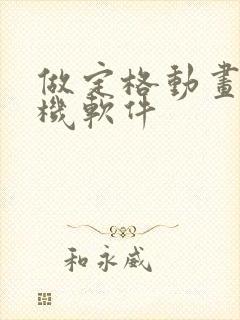 做定格動畫
機軟件
和永威